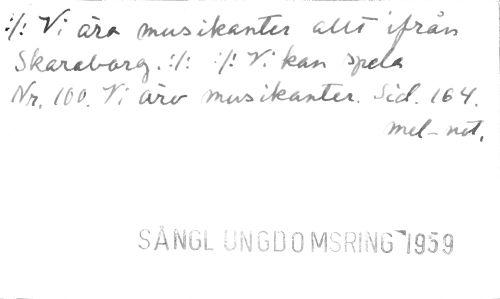 :/: Vi äro musikanter allt ifrån
Skaraborg. :/: :/: Vi kan spela
Nr. 100. Vi äro musikanter. Sid. 164.
mel-not.
SÅNGL UNGDOMSRING 1959